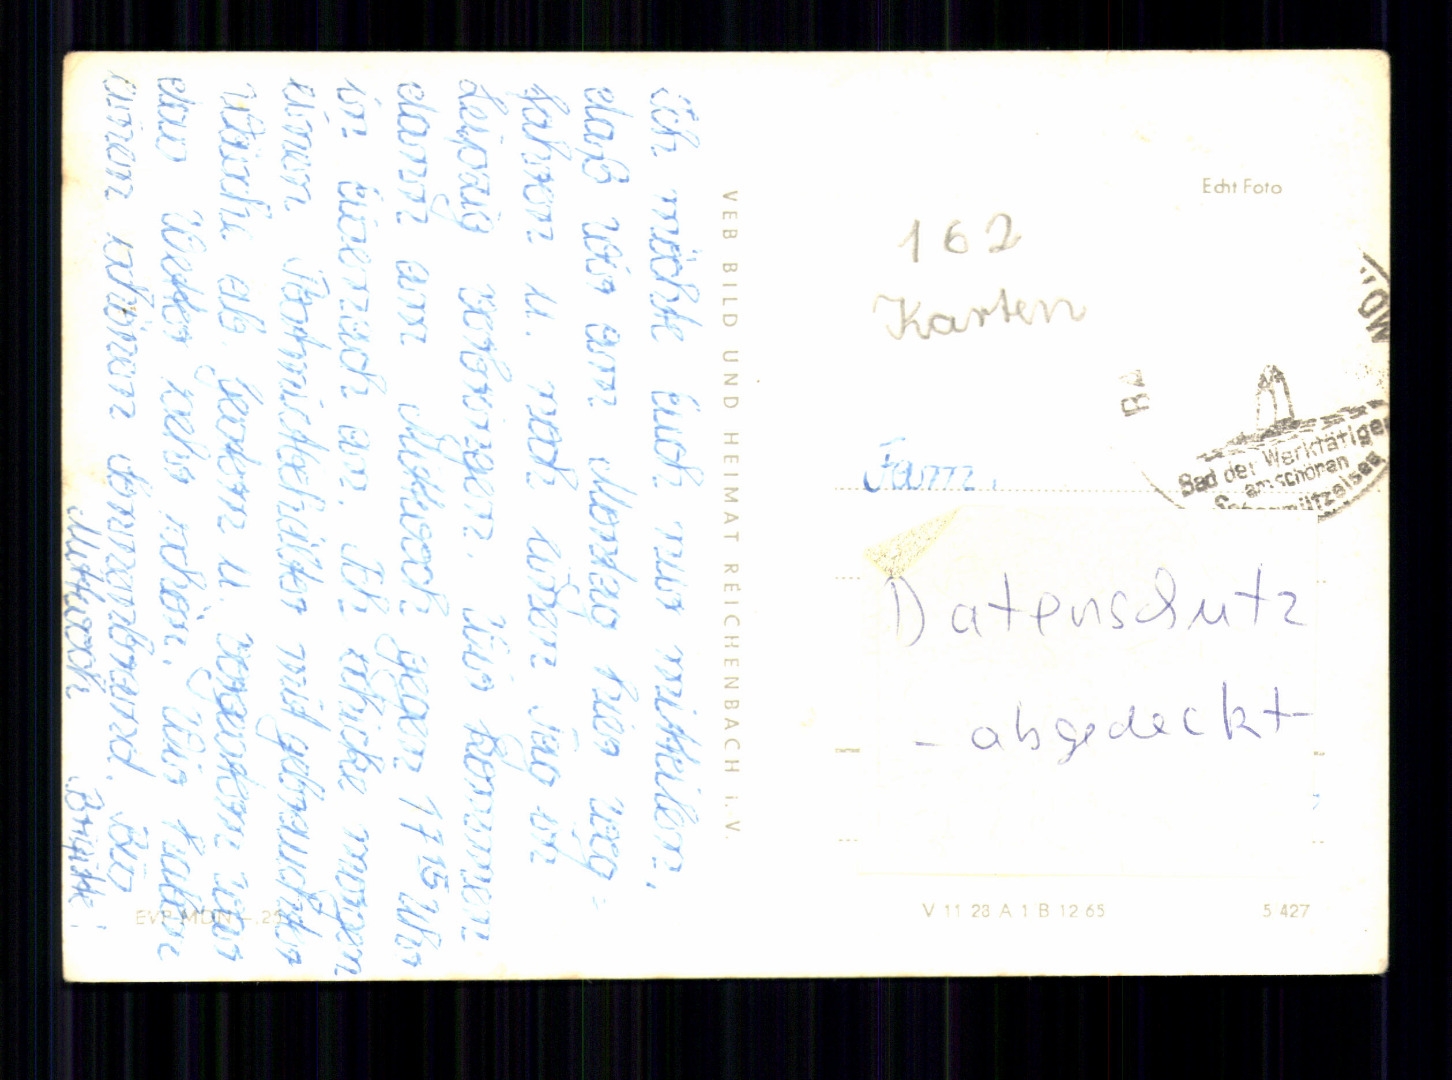 Ich möchte Euch nur mitteilen,
daß wir am Montag hier weg-
fahren u. noch über Tag in
Leipzig verbringen. Wir kommen
dann am Mittwoch gegen 17 15 Uhr
in an. Ich schicke morgen
einen mit gebrauchter
Wäsche ab. Gestern u. war
das Wetter sehr schön. Wir hatten
einen schönen Bis
Mittwoch Brigitte
VEB BILD UND HEIMAT REICHENBACH i. V.
EVP MDN -.25
Echt Foto
162
Karten
Bad der Werktätigen
am schönen
Fam.
Datenschutz
- abgedeckt
V 11 28 A 1 B 12 65
5 427